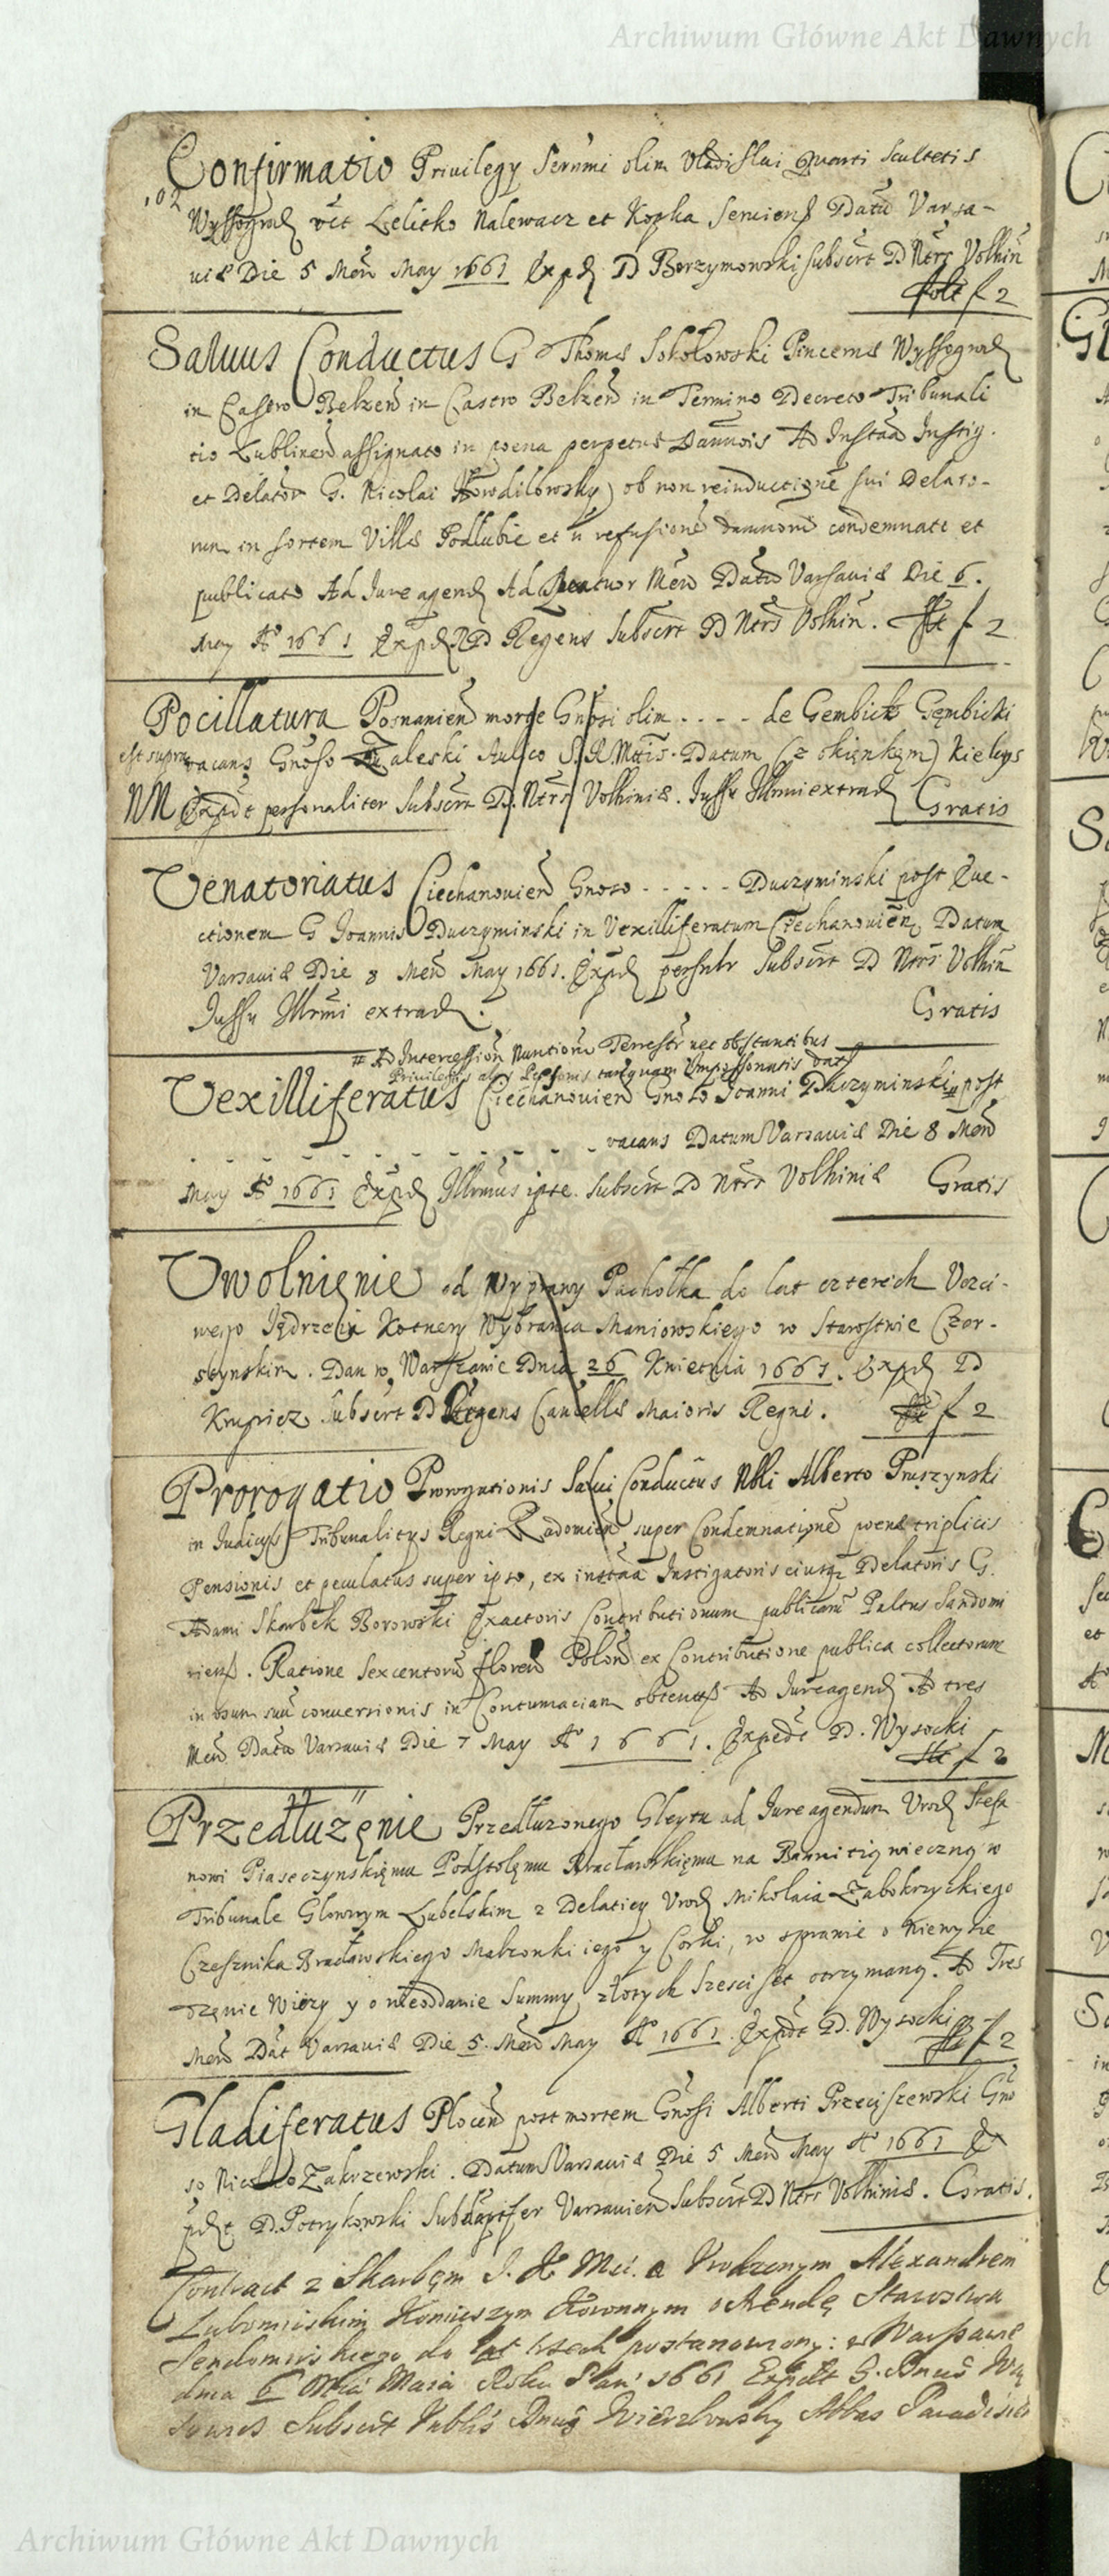 Archiwum Główne Akt Dawnych
Confirmatio Priuilegy Serñmi olim Vladislai Quarti Scultetis
102
Wyssogrod vct Lelitko Nalewacz et Kopka seruien Datũ Varsa-
uiæ Die 5 Meñ May 1661 Exp D Borzymowski subscrt D Ntrs Volhiñ
f 2
Saluus Conductus G Thomæ Sokołowski Pincernæ Wyssograd
in Castro Belzeñ in Castro Belzeñ in Termino Decreto Tribunali
tio Lublineñ assignato in poena perpetuæ Bannois Ad Instaã Instig.
et Delator G. Nicolai ob non reinductionẽ sui Delato-
rum in sortem Villæ Podlubie et ñ refusionẽ damnorũ condemnati et
publicato Ad Jure agend Ad Quatuor Meñ Datũ Varsauiæ Die 6.
May Aº 1661 Exp D Regens Subscrt D Ntrs Volhiñ. f 2
Pocillatura Posnanieñ morte Gnosi olim . . . . de Gembick Gembicki
est supra vacans Gnoso Zaleski Aulico S.R.Mttis. Datum (z okienkem) Kielcys
NM Expdt personaliter Subscrt D. Ntrs Volhiniæ. Jussu Illrmi extrad Gratis
Venatoriatus Ciechanouieñ Gnoso . . . . . Duczyminski post Eue-
ctionem G Joannis Duczyminski in Vexilliferatum Ciechanouieñ Datum
Varsauiæ Die 8 Meñ May 1661. Exp persnlr Subscrt D Ntrs Volhiñ
Jussu Illrmi extrad. Gratis
# Ad Intercession Nuntiorũ Terrestr nec obstantibus
Priuilegijs alijs Personis tanquam Impossionatis dat
Vexilliferatus Ciechanouieñ Gnoso Joanni Duczyminski # post
. . . . . . . . . . . . . vacans Datum Varsauiæ Die 8 Meñ
May Aº 1661 Exp Illrmus ipse. Subscrt D Ntrs Volhiniæ Gratis
Uwolnienie od Wyprawy Pachołka do lat czterech Vczci-
wego Jędrzeia Kotnery Wybranca Maniowskiego w Starostwie Czor-
stynskim. Dan w Warszawie Dnia 26 Kwietnia 1661. Exp D
Krupicz Subscrt D Regens Cancellæ Maioris Regni. f 2
Prorogatio Prorogationis Salui Conductus Nbli Alberto Pruszynski
in Iudicijs Tribunalitijs Regni Radomieñ super Condemnationẽ poenæ triplicis
Pensionis et peculatus super ipso, ex instãa Instigatoris eiusq Delatoris G.
Adami Skarbek Borowski Exactoris Contributionum publicarũ Paltus Sandomi
riens. Ratione Sexcentorũ floreñ Poloñ ex Contributione publica collectorum
in vsum suũ conuersionis in Contumaciam obtent Ad Jureagend Ad tres
Meñ Datũ Varsauiæ Die 7 May Aº 1661. Expedt D. Wysocki
f 2
Przedłużenie Przedłuzonego Gleytu ad Jure agendum Urod Stefa
nowi Piaseczynskiemu Podstolemu Bracławskiemu na Bannitią wieczną w
Tribunale Głownym Lubelskim z Delatiey Urod Mikołaia Zabokrzyckiego
Czesznika Bracławskiego Małzonki iego y Corki, w sprawie o niewysie
dzenie Wiezy y o nieoddanie Summy złotych szesci set otrzymaną. Ad Tres
Meñ Dat Varsauiæ Die 5. Meñ May Aº 1661. Expdt D. Wysocki f 2
Gladiferatus Ploceñ post mortem Gnosi Alberti Przeciszewski Gno
so Nicolao Zakrzewski. Datum Varsauiæ Die 5 Meñ May Aº 1661 Ex
pdt D. Potrykowski Subdapifer Varsauieñ Subscrt D Ntrs Volhiniæ. Gratis.
Contract z Skarbem J. K. Mci. a Vrodzonym Alexandrem
Lubomirskim Koniuszym Koronnym o Arendę Starostwa
Sendomirskiego do lat trzech postanowiony: w Warszawie
dnia 6 Mca Maia Roku Pań 1661 Expdt G. Dnus
Subscrt Nblis Dnus Wierzbowsky Abbas Paradisien
Archiwum Główne Akt Dawnych